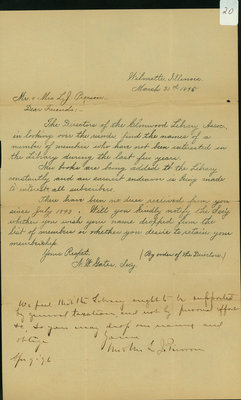 20
Wilmette, Illinois
March 30th 1896
Mr. & Mrs L. J. Pierson.
Dear Friends:—
The Directors of the Library Assoc.
in looking over the records, find the names of a
number of members who have not been interested in
the Library during the last few years.
New books are being added to the Library
constantly and an earnest endeavor is being made
to interest all subscribers.
There have been no dues received from you
since July 1893. Will you kindly notify the Secy
whether you wish your name dropped from the
list of members or whether you desire to retain your
membership.
Yours Respct.
(By order of the Directors)
Gates, Secy.
We feel that the Library ought to be supported
by general taxation and not by personal effort
so you may drop our names and
oblige
Yours
Mr & Mrs L J Pierson
Apr 9-96